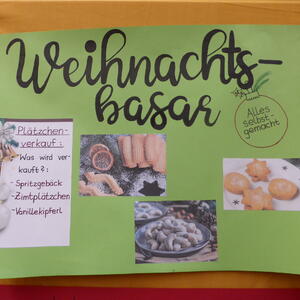 Weihnachts-
basar
Alles
selbst-
gemacht
Plätzchen-
verkauf:
-Was wird ver-
kauft?:
-Spritzgebäck
-Zimtplätzchen
-Vanillekipferl